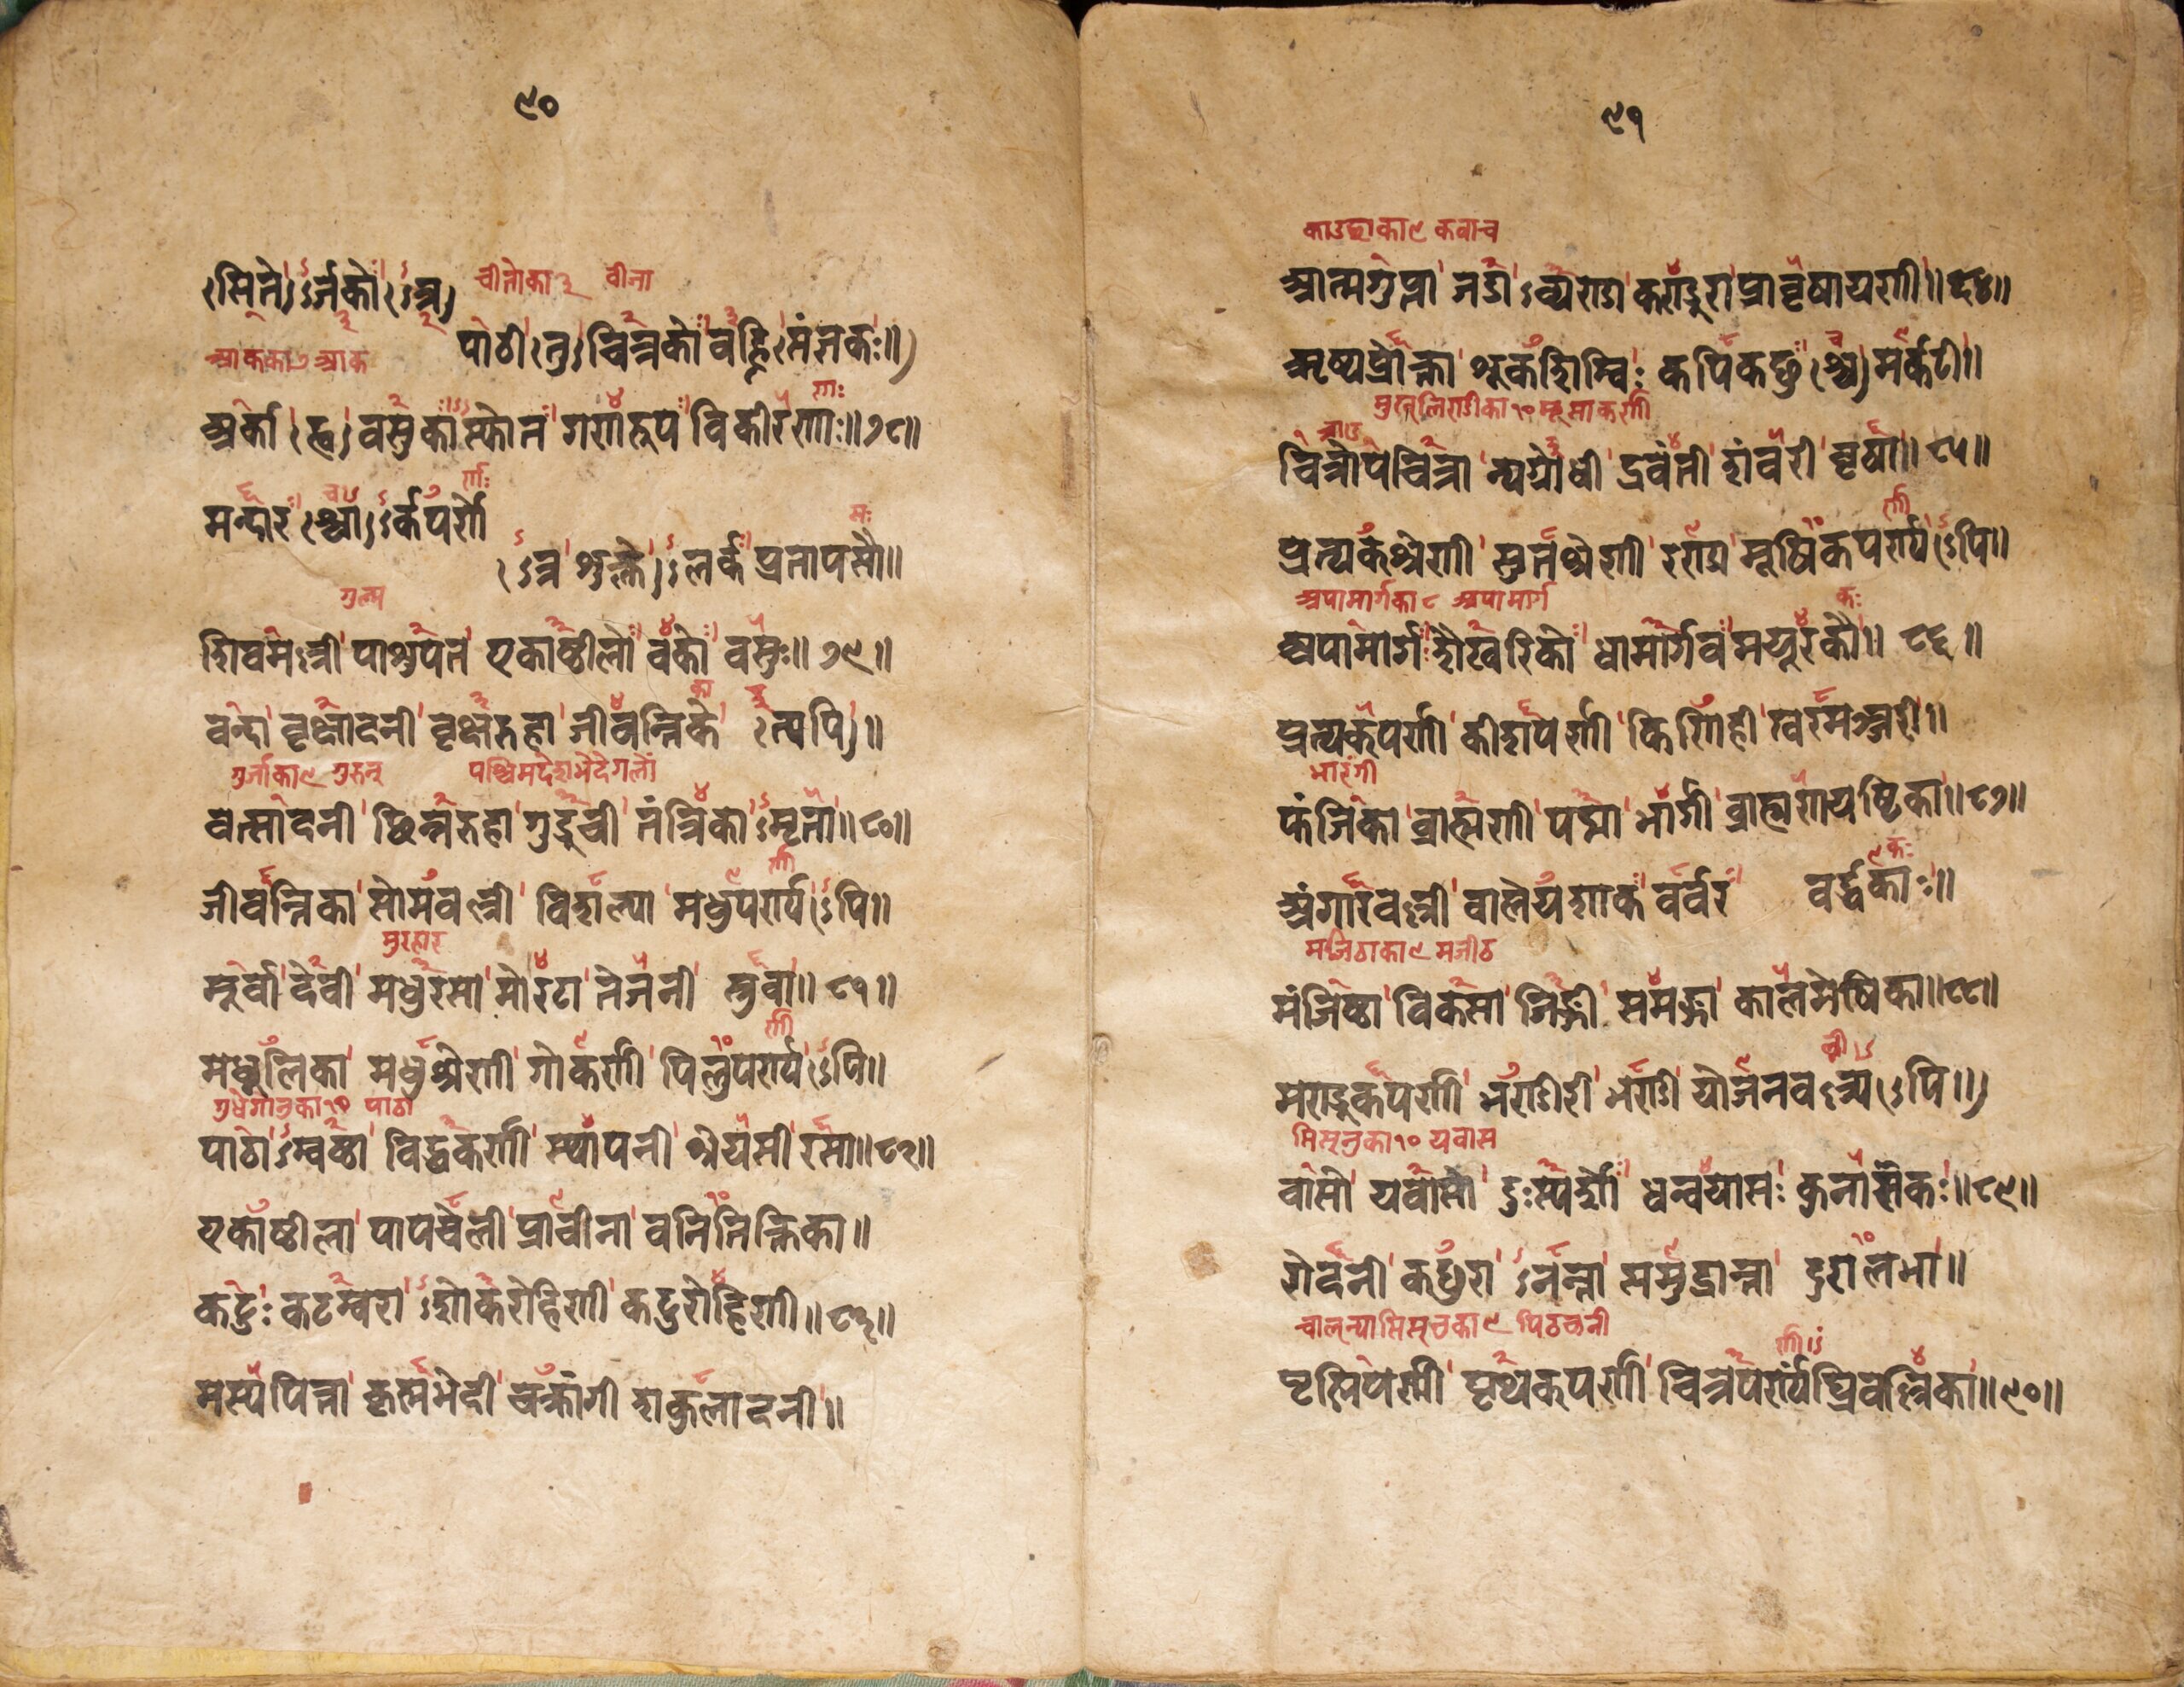 ९०
सिते ऽर्जको ऽत्र चीतोका ३ चीता
पाठी तु चित्रको वह्निसंज्ञकः॥
आकका ७ आक
अर्का ह्व वसुकास्फोत गणरुप विकीरणाः॥७८॥
मन्दार श्चा ऽर्कपर्णो
ऽत्र शुक्ले ऽलर्क प्रतापसौ॥
गुल्म
शिवमल्ली पाशुपत एकाष्ठीलो वको वसुः॥७९॥
वन्दा वृक्षादनी वृक्षरुहा जीवन्तिके त्यपि॥
गुर्जोका ९ गुरुज्
वत्सादनी छिन्नरुहा गुडूची तंत्रिका ऽमृता॥८०॥
जीवन्तिका सोमवल्ली विशल्या मधुपर्ण्य ऽपि॥
मुरहार
मूर्वा देवी मधुरसा मोरटा तेजनी स्रुवा॥८१॥
मधूलिका मधुश्रेणी गोकर्णी पिलुपर्ण्य ऽपि॥
पाठा
पाठा ऽम्वष्ठा विद्धकर्णी स्थापनी श्रेयसी रसा॥८२॥
एकाष्ठीला पापचेली प्राचीना वनतिक्तिका॥
कटुः कटम्वरा ऽशोकरोहिणी कटुरोहिणी॥८३॥
मत्स्यपित्ता कृष्णभेदी चक्रांगी शकुलादनी॥
९१
काउछाका ९ कवाच
आत्मगुप्ता जडा ऽव्यण्डा कण्डुरा प्रावृषायणी॥८४॥
ऋष्यप्रोक्ता शूकशिम्विः कपिकछु श्च मर्कटी॥
चित्रोपचित्रा न्यग्रोधी द्रवंती शंवरी वृषा॥८५॥
प्रत्यकश्रेणी सुतश्रेणी रण्डा मूषिकपर्ण्य ऽपि॥
अपामार्गका ८ अपामार्ग
अपामार्ग शैखरिको धामार्गव मयूरकौ॥८६॥
प्रत्यकपर्णी कीशपर्णी किणिही खरमञ्जरी॥
भारंगी
फंजिका ब्राह्मणी पद्मा भार्गी ब्राह्मणयष्टिका॥८७॥
अंगारवल्ली वालेयशाक वर्वर वर्द्धकाः॥
मजिठाका ९ मजीठ
मंजिष्ठा विकसा जिङ्गी समङ्गा कालमेषिका॥८८॥
मण्डूकपर्णी भण्डीरी भण्डी योजनवल्ल्य ऽपि॥
मिस्नुका १० यवास
वासो यवासो दुःस्पर्शो धन्वयासः कुनाशकः॥८९॥
रोदनी कछुरा ऽनन्ता समुद्रान्ता दुरालभा॥
पृस्निपर्णी पृथकपर्णी चित्रपर्ण्यंघ्रिवल्लिका॥९०॥